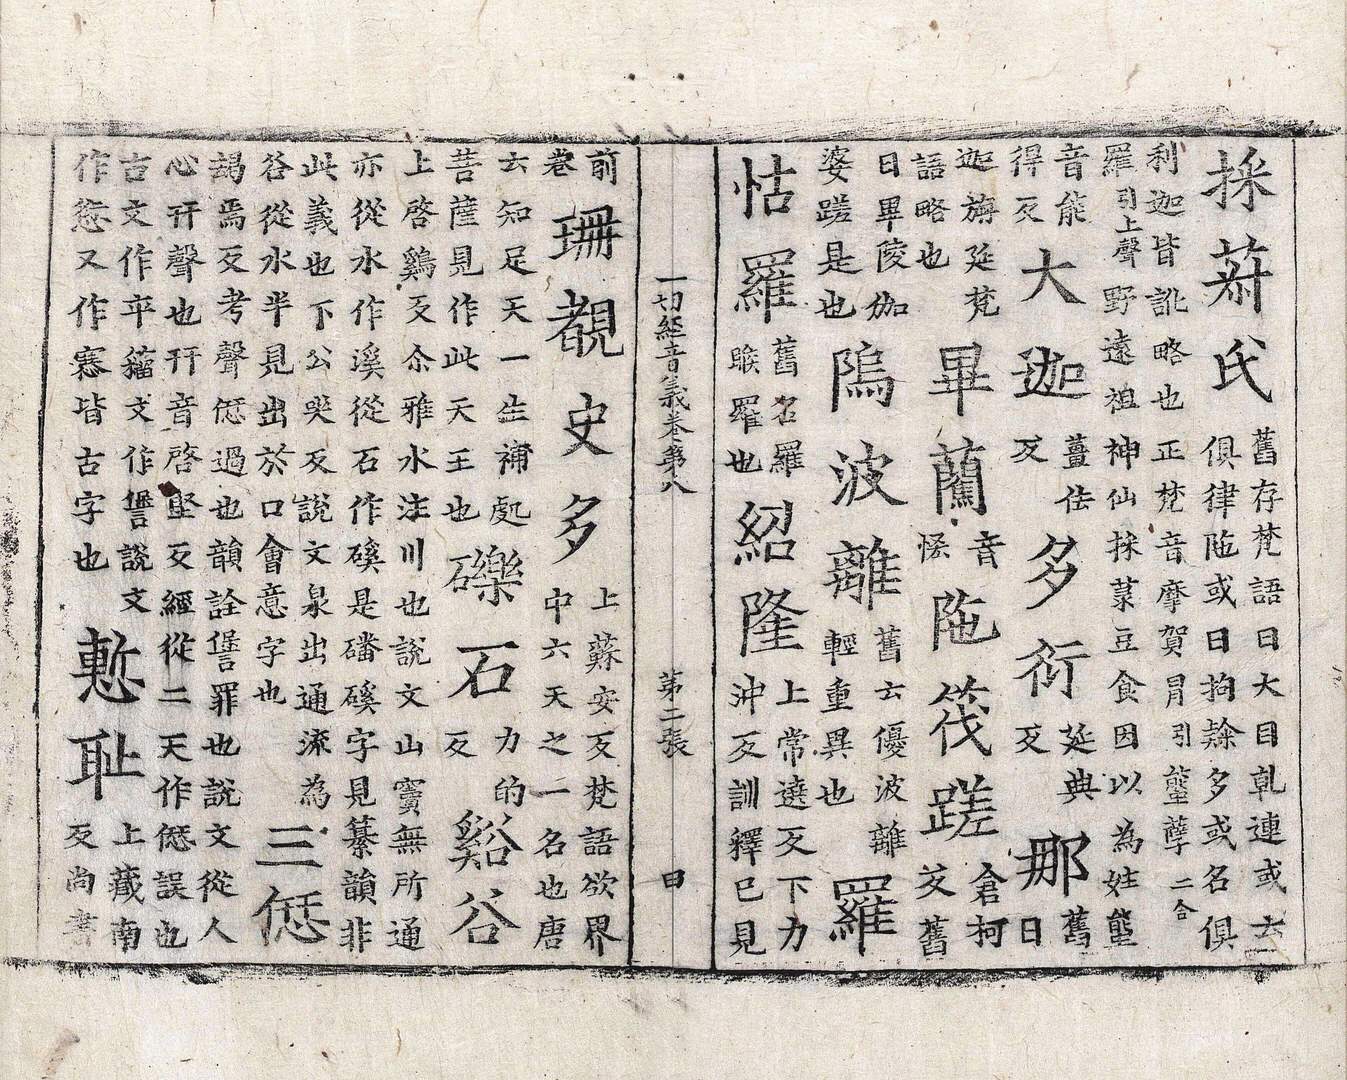 採菽氏舊存梵語曰大目乾連或云俱律陁或曰拘隸多或名俱
利迦皆訛略也正梵音摩賀冐引䑏孽二合羅引上聲野遠祖神仙採菉豆食因以為姓䑏
音能得反大迦薑佉反多衍延典反那舊曰
迦旃延梵語略也畢藺音悋陁筏蹉倉柯反舊
曰畢陵伽婆蹉是也隖波離舊云優波離輕重異也羅
怙羅舊名羅睺羅也紹隆上常遶反下力沖反訓釋已見
一切經音義卷第八 第二張 甲
前卷珊覩史多上蘇安反梵語欲界中六天之一名也唐
云知足天一生補處菩薩見作此天王也礫石力的反谿谷
上啓鷄反尒雅水注川也說文山竇無所通亦從水作溪從石作磎是磻磎字見纂韻非
此義也下公哭反說文泉出通流為谷從水半見出於口會意字也三愆
朅焉反考聲愆過也韻詮諐罪也說文從人心幵聲也幵音啓堅反經從二天作𠎝誤也
古文作䇂籀文作諐說文作愆又作寋皆古字也慙耻上蔵南反尚書